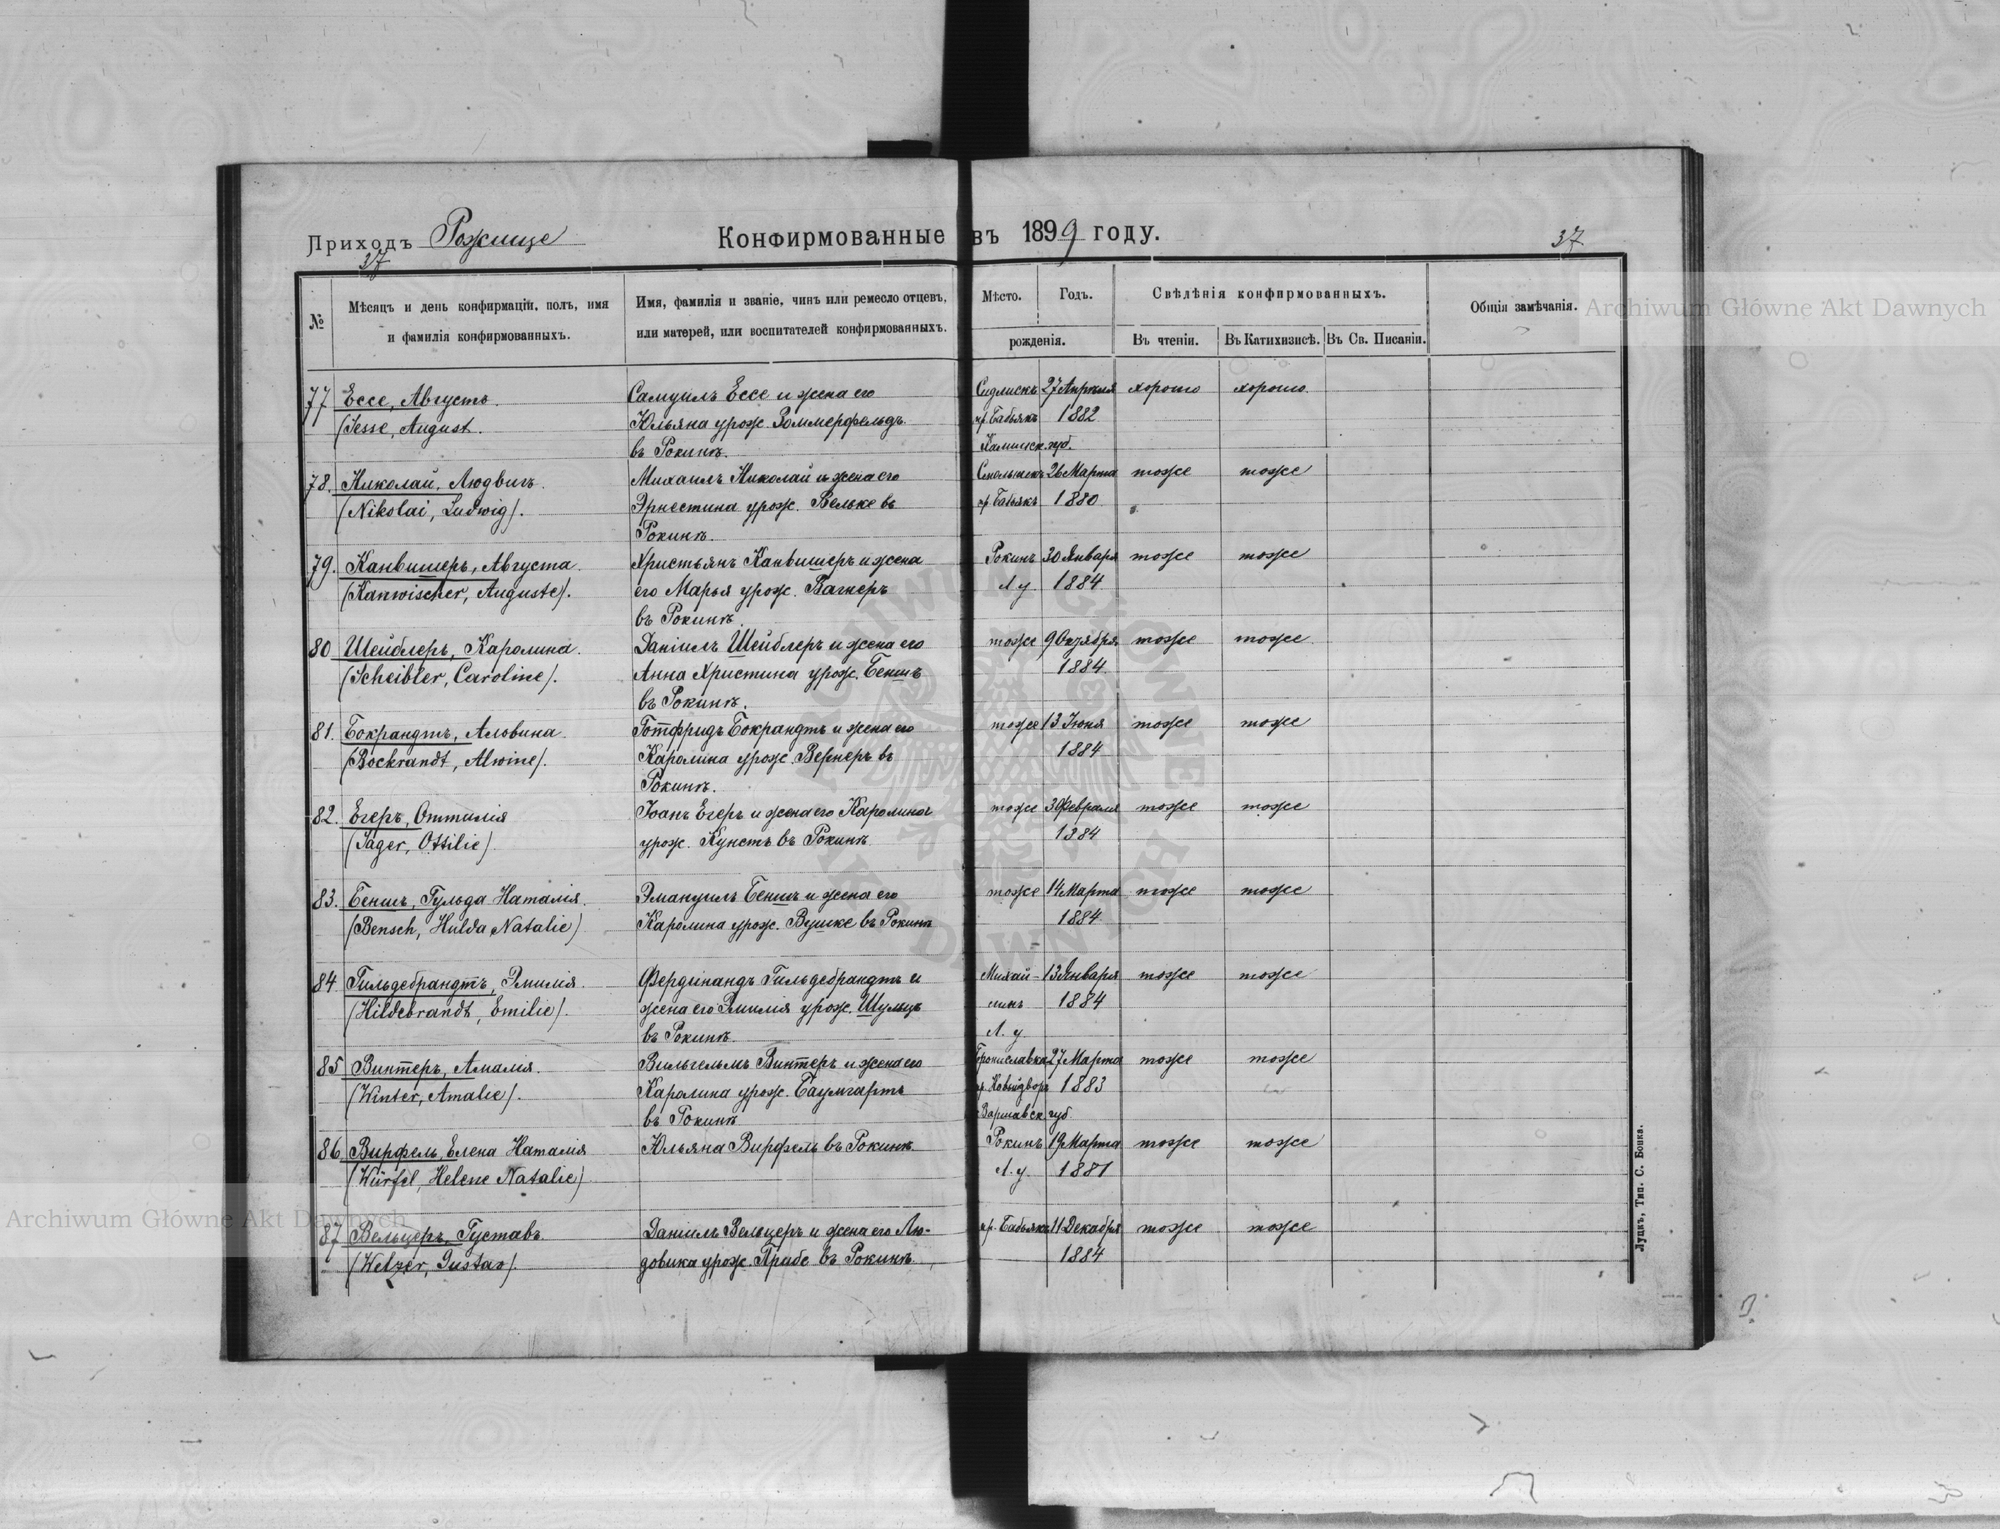 Приходъ Рожище
Конфирмованные въ 1899 году.
37
37
№
Мѣсяцъ и день конфирмаціи, полъ, имя
и фамилія конфирмованныхъ.
Имя, фамилія и званіе, чинъ или ремесло отцевъ,
или матерей, или воспитателей конфирмованныхъ.
Мѣсто.
Годъ.
рожденія.
Свѣдѣнія конфирмованныхъ.
Въ чтеніи.
Въ Катихизисѣ.
Въ Св. Писаніи.
Общія замѣчанія.
77 Ессе, Августъ. Самуилъ Ессе и жена его 27 Апреля хорошо хорошо.
(Jesse, August. Юльяна урож. Зоммерфельдъ пр. Бабьякъ 1882
въ Рокинѣ. губ.
78. Николай, Людвигъ. Михаилъ Николай и жена его 26 Марта тоже тоже
(Nikolai, Ludwig). Эрнестина урож. Вельке въ пр. Бабьякъ 1880
Рокинѣ.
79. Канвишеръ, Августа. Христьянъ Канвишеръ и жена Рокинъ 30 Января тоже тоже
(Kanwischer, Auguste). его Марья урож. Вагнеръ Л у. 1884
въ Рокинѣ.
80 Шейблеръ, Каролина. Даніилъ Шейблеръ и жена его тоже 9 Октября тоже тоже
(Scheibler, Caroline). Анна Христина урож. Беншъ 1884
въ Рокинѣ.
81. Бокрандтъ, Альвина. Готфридъ Бокрандтъ и жена его тоже 13 Іюня тоже тоже
(Bockrandt, Alwine). Каролина урож. Вернеръ въ 1884
Рокинѣ.
82. Егеръ, Оттилія Іоанъ Егеръ и жена его Каролина тоже Февраля тоже тоже
(Jäger, Ottilie). урож. Кунстъ въ Рокинѣ 1884
83. Беншъ, Гульда Наталія. Эмануилъ Беншъ и жена его тоже 14 Марта тоже тоже
(Bensch, Hulda Natalie) Каролина урож. Вушке въ Рокинѣ 1884
84. Гильдебрандтъ, Эмилія. Фердинандъ Гильдебрандтъ и Михай- 13 Января тоже тоже
(Hildebrandt, Emilie). жена его Эмилія урож. Шульцъ линъ 1884
въ Рокинѣ. Л. у
85 Винтеръ, Амалія. Вильгельмъ Винтеръ и жена его Брониславка 27 Марта тоже тоже
(Winter, Amalie). Каролина урож. Баумгартъ 1883
въ Рокинѣ Варшавск. губ
86. Вирфель, Елена Наталія Юльяна Вирфель въ Рокинѣ. Рокинъ 19 Марта тоже тоже
(Würfel, Helene Natalie) Л. у. 1881
87 Вельцеръ, Густавъ. Даніилъ Вельцеръ и жена его Лю- пр. Бабьякъ 11 Декабря тоже тоже
(Welzer, Gustav). довика урож. Прибе въ Рокинѣ. 1884
Луцкъ, Тип. С. Бонка.
Archiwum Główne Akt Dawnych
Archiwum Główne Akt Dawnych
ARCHIWUM GŁÓWNE AKT DAWNYCH